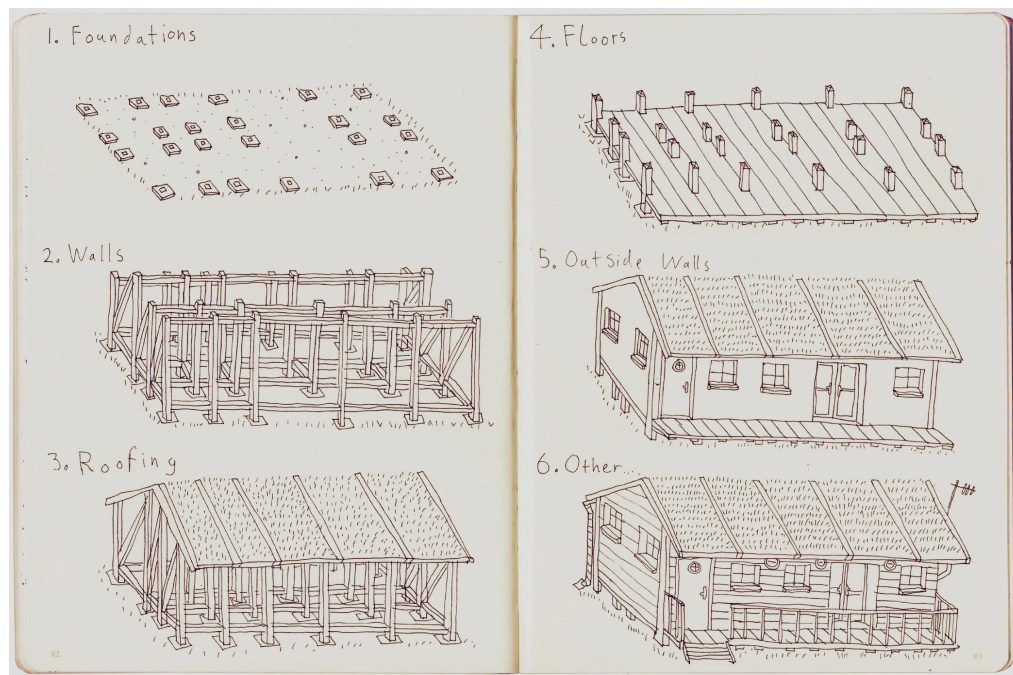 1. Foundations
2. Walls
3. Roofing
82
4. Floors
5. Outside Walls
6. Other...
83